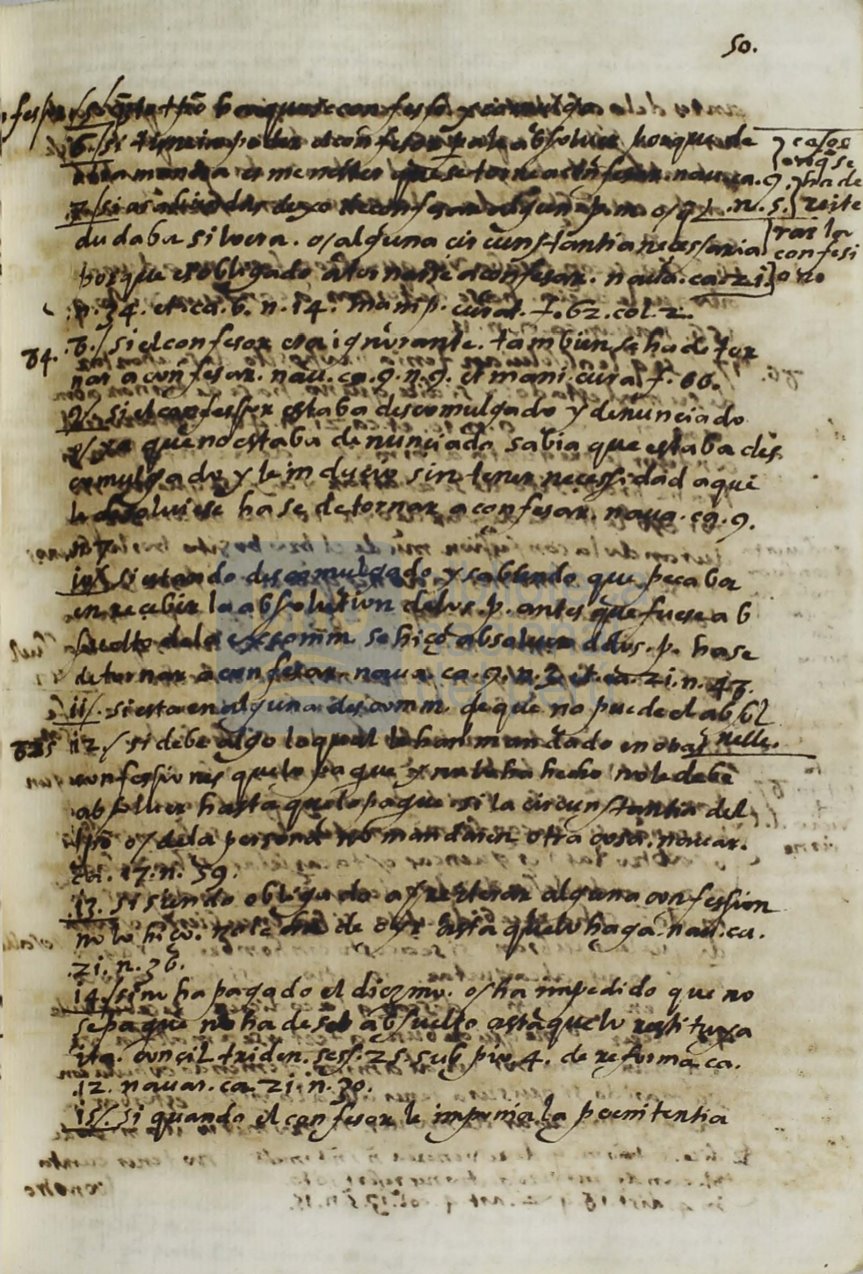 50.
5. / quāto tpō ha que se confeso y comulgo
6. / si tenia poder el confesor pa le absoluer porque de
otra manera es menester que se torne a confesar. nau. ca. 9.
7. / si
n. 5.
dudaba si lo era. o / alguna circunstantia necessaria
porque es obligado a tornarse a confesar. naua. ca. 21.
n. 34. et. ca. 6. n. 14. manip. curat. f. 62. col. 2.
casos
en q̄ se
ha de
reite
rar la
confesi
on
84.
8. / si el confesor era ignorante. tambien se ha de tor
nar a confesar. nau. ca. 9. n. 9. et mani. cura. f. 66.
9. / si el confessor estaba descomulgado y denunciado
o / ya que no estaba denunciado sabia que estaba des
comulgado y le induciē sin tener necessidad a que
le absoluiese ha se de tornar a confesar. naua. ca. 9.
n. 7.
10. / si estando descomulgado y sabiendo que pecaba
en recebir la absolution de los. p. antes que fuese ab
suelto de la excomm. se hiço absoluer de los. p. hase
de tornar a confesar. naua. ca. 9. n. 3. et. ca. 21. n. 43.
11. / si esta en alguna descomm. de que no puede el absol
uelle.
85
12. / si debe algo lo qual le han mandado en otras
confessiones que lo pague y no lo ha hecho no le debē
absoluer hasta que lo pague si la circunstantia del
tpō o / de la persona no mandasen otra cosa. nauar.
ca. 17. n. 59.
13. si siendo obligado a reiterar alguna confession
no lo hiço. no se ha de oyr asta que lo haga. nau. ca.
21. n. 36.
14. / si no ha pagado el diezmo. o / ha impedido que no
se pague no ha de ser absuelto asta que lo restituya
ita. conçil. triden. sess. 25. sub pio. 4. de reforma. ca.
12. nauar. ca. 21. n. 30.
15. / si quando el confesor le imponia la poenitentia